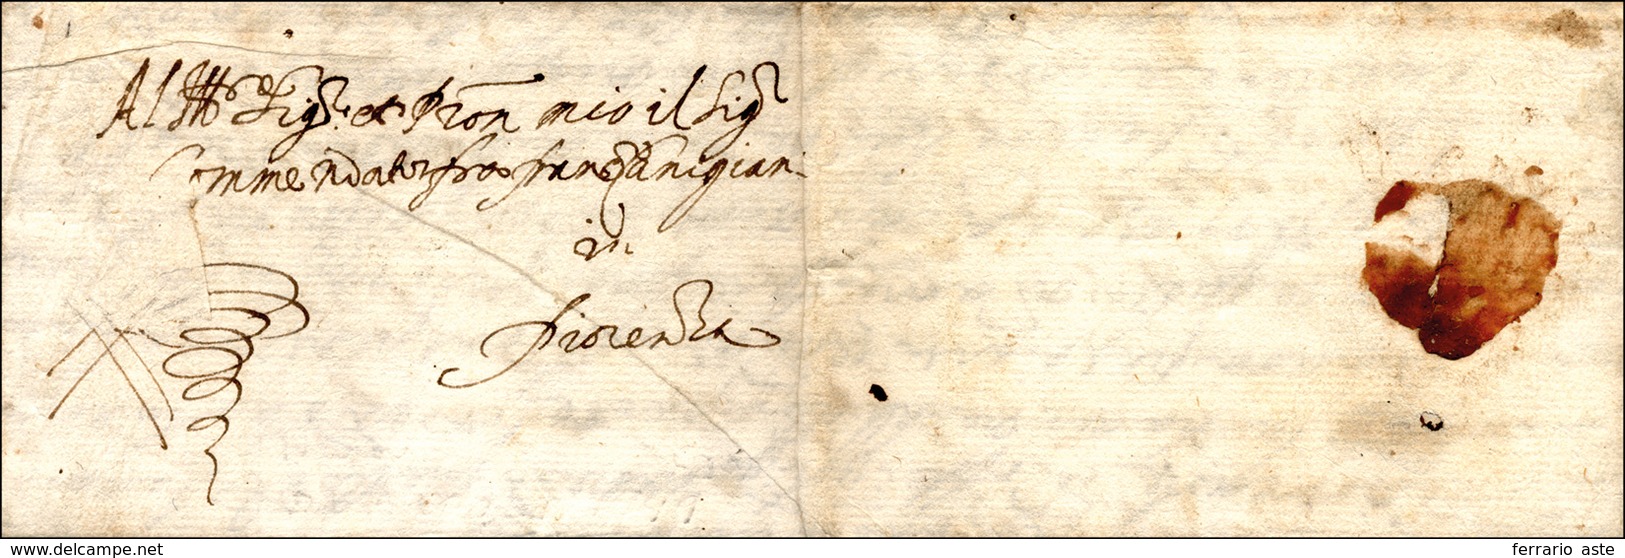 Al Ill.mo Sig.r et Pron mio il Sig.r
Commendator fra Franc.o
in
Fiorenza
www.delcampe.net
ferrario aste